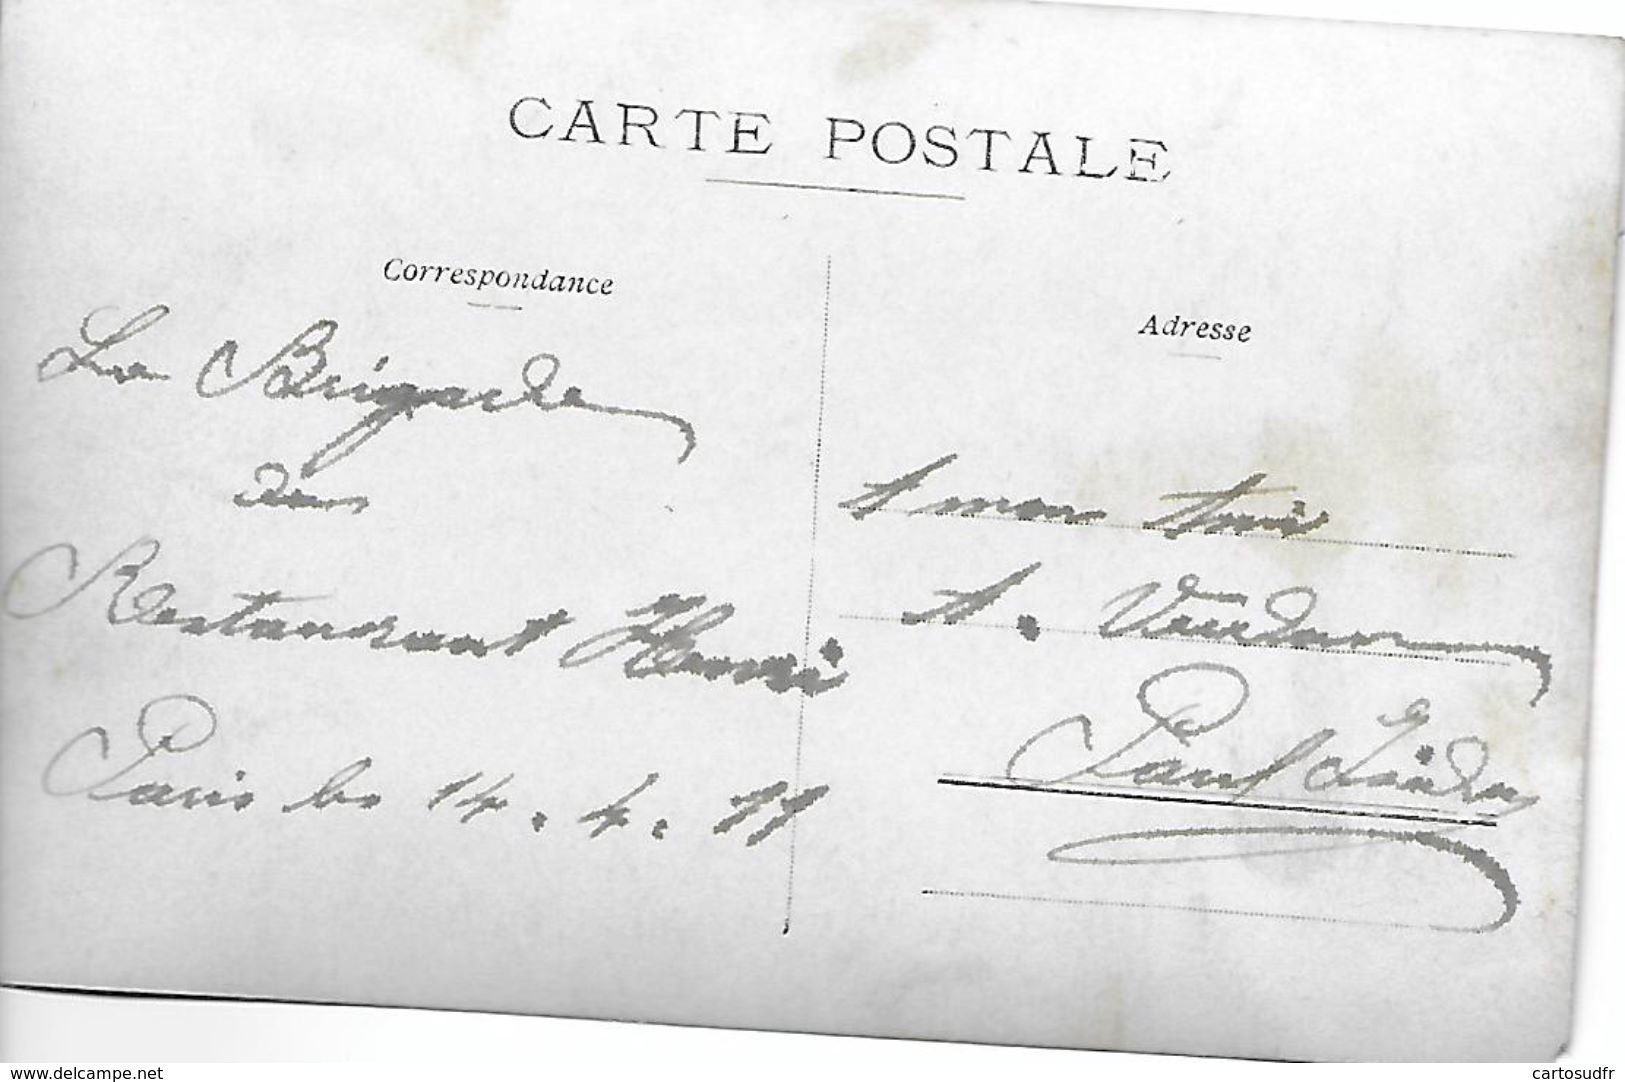 CARTE POSTALE
Correspondance
La Brigade
du
Restaurant Henri
Paris le 14.4.11
Adresse
A mon Ami
A.
Paul
delcampe.net
cartosudfr